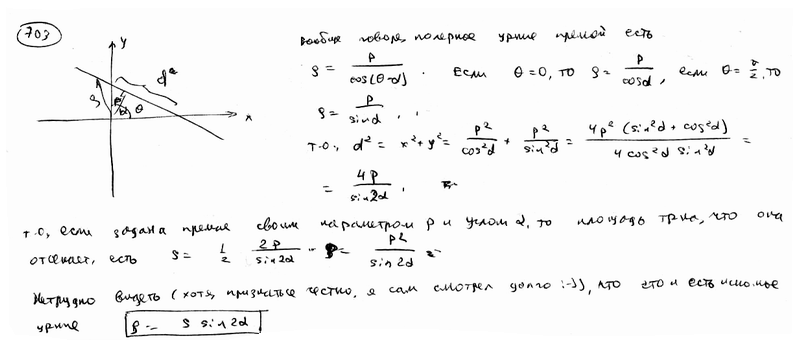 703
y
d²
ρ
p
α
θ
x
Вообще говоря, полярное ур-ние прямой есть
ρ = p / cos(θ-α) . если θ=0, то ρ = p / cosα, если θ = π/2, то
ρ = p / sinα .
т.о., d² = x²+y² = p² / cos²α + p² / sin²α = 4p² (sin²α + cos²α) / 4 cos²α sin²α =
= 4p / sin2α .
т.о, если задана прямая своим параметром p и углом α, то площадь тр-ка, что она
отсекает, есть S = 1/2 2p / sin2α · p = p² / sin2α =
Нетрудно видеть (хотя, признаться честно, я сам смотрел долго :-)), что это и есть искомое
ур-ние ρ = S sin2α